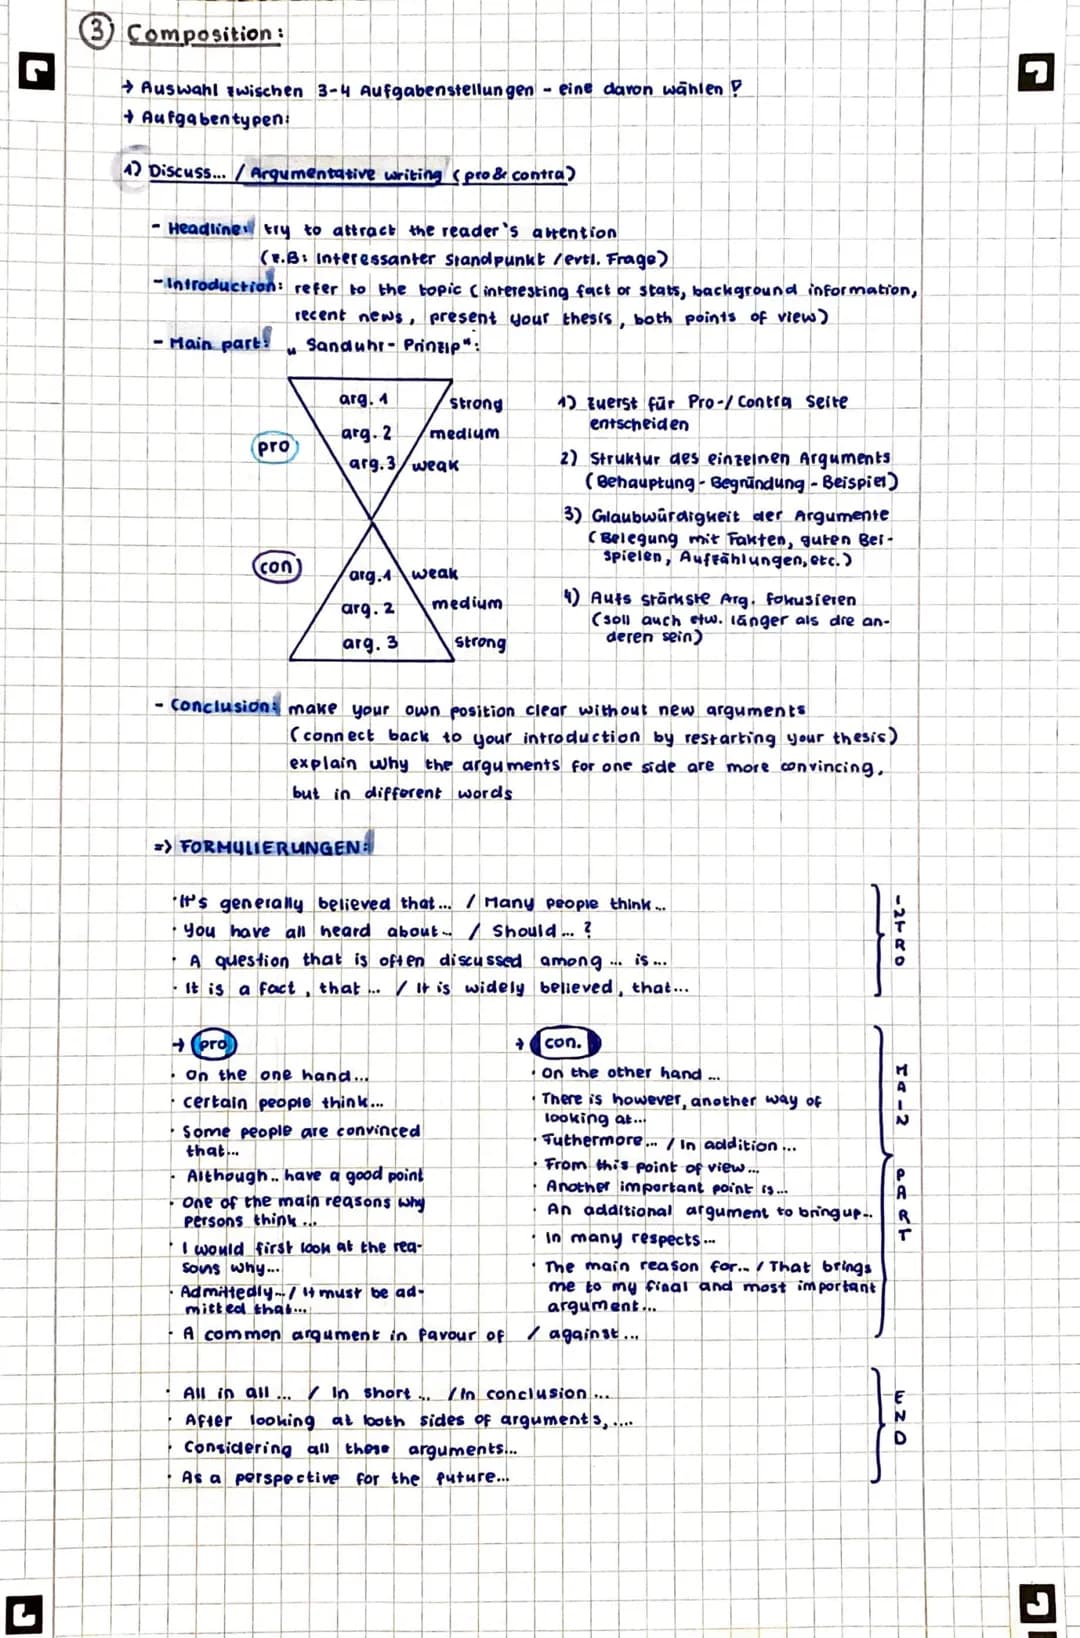 3 Composition:
→ Auswahl zwischen 3-4 Aufgabenstellungen - eine davon wählen !
→ Aufgabentypen:
1) Discuss... / Argumentative writing (pro & contra)
- Headline: try to attract the reader's attention
(z.B: Interessanter Standpunkt / evtl. Frage)
- Introduction: refer to the topic (interesting fact or stats, background information,
recent news, present your thesis, both points of view)
- Main part: „Sanduhr-Prinzip":
arg. 1 strong
arg. 2 medium
pro
arg. 3 weak
con
arg. 1 weak
arg. 2 medium
arg. 3 strong
1) zuerst für Pro-/Contra Seite
entscheiden
2) Struktur des einzelnen Arguments
(Behauptung - Begründung - Beispiel)
3) Glaubwürdigkeit der Argumente
(Belegung mit Fakten, guten Bei-
spielen, Aufzählungen, etc.)
4) Aufs stärkste Arg. fokusieren
(soll auch etw. länger als die an-
deren sein)
- Conclusion: make your own position clear without new arguments
(connect back to your introduction by restarting your thesis)
explain why the arguments for one side are more convincing,
but in different words
=> FORMULIERUNGEN:
· It's generally believed that... / Many people think...
· You have all heard about... / Should... ?
· A question that is often discussed among ... is...
· It is a fact, that ... / It is widely believed, that...
INTRO
→ pro
· On the one hand...
· certain people think...
· Some people are convinced
that...
· Although.. have a good point
· One of the main reasons why
persons think ...
· I would first look at the rea-
sons why...
· Admittedly... / it must be ad-
mitted that...
→ con.
· On the other hand ...
· There is however, another way of
looking at...
· Futhermore... / In addition ...
· From this point of view...
· Another important point is...
· An additional argument to bring up...
· In many respects...
· The main reason for... / That brings
me to my final and most important
argument...
· A common argument in favour of / against...
MAIN PART
· All in all ... / In short ... / In conclusion ...
· After looking at both sides of arguments, ....
· Considering all these arguments...
· As a perspective for the future...
END